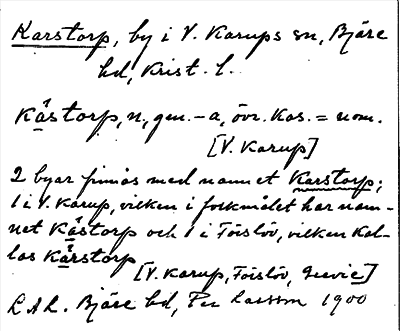 Karstorp, by i V. Karups sn, Bjäre
hd, Krist. l.
Kåstorp, n, gen. -a, övr. kas. = nom.
[V. Karup]
2 byar finnas med namnet Karstorp;
1 i V. Karup, vilken i folkmålet har nam-
net Kåstorp och 1 i Förslöv, vilken kal-
las Kårstorp
[V. Karup, Förslöv, Grevie]
L.A.L. Bjäre hd, Per Larsson 1900